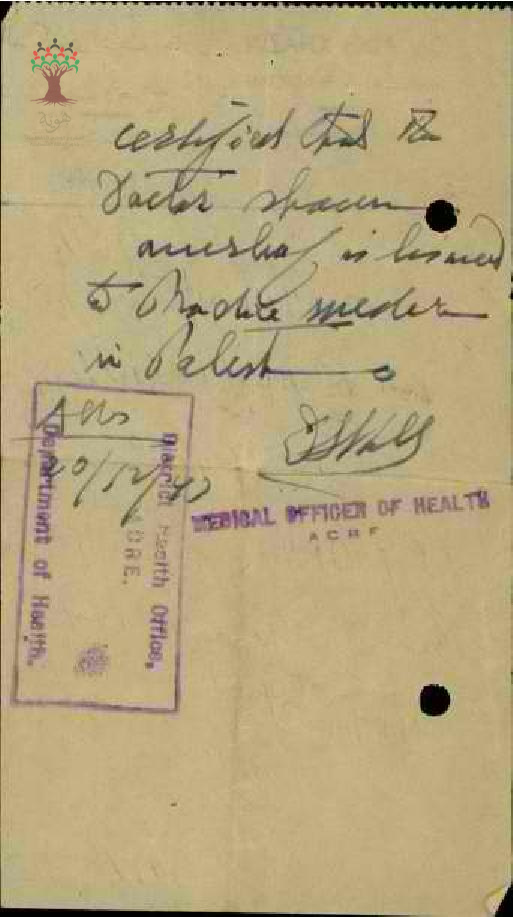 certified that the
Doctor
is licensed
to Practice medicin
in Palest
Acre
20/12/47
MEDICAL OFFICER OF HEALTH
ACRE
District Health Office,
ACRE.
Department of Health.